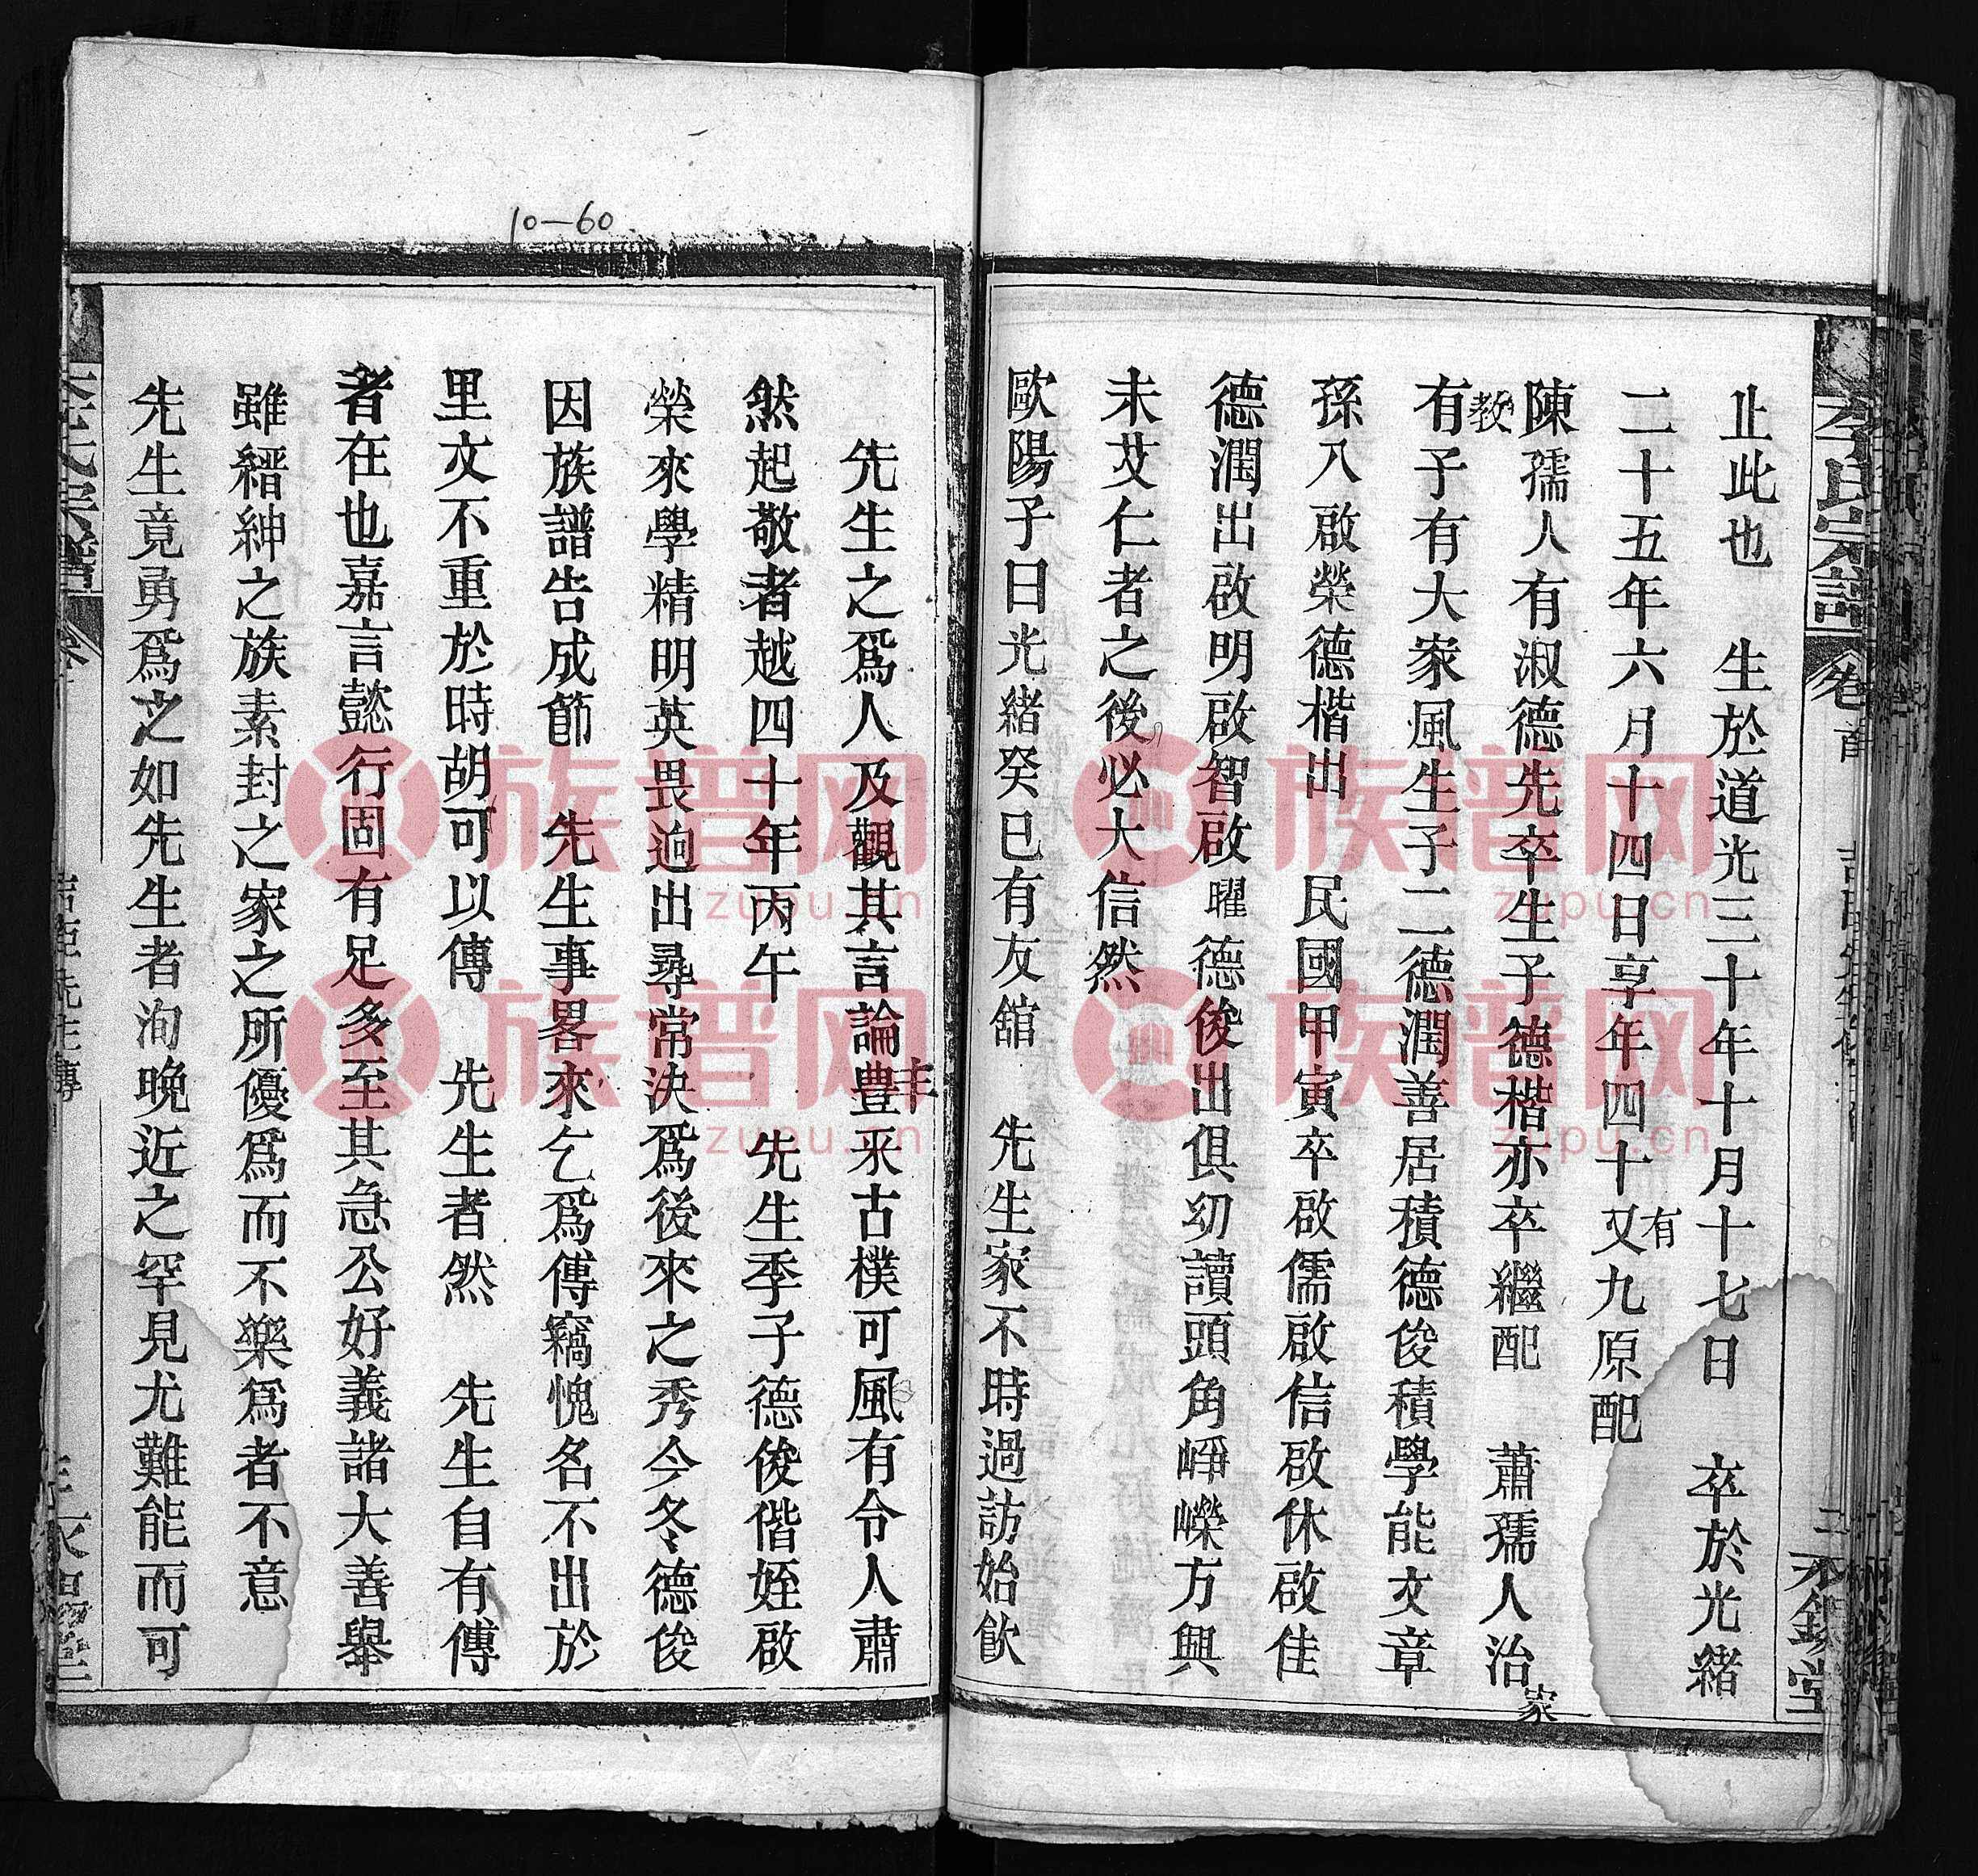 李氏宗譜
卷首
永錫堂
止此也　生於道光三十年十月十七日　卒於光緒
二十五年六月十四日享年四十又九原配
有
陳孺人有淑德先卒生子德楷亦卒繼配　蕭孺人治
家
教
有子有大家風生子二德潤善居積德俊積學能文章
孫八啟榮德楷出　民國甲寅卒啟儒啟信啟休啟佳
德潤出啟明啟智啟曜德俊出俱幼讀頭角崢嶸方興
未艾仁者之後必大信然
歐陽子曰光緒癸巳有友舘　先生家不時過訪始飲
10—60
先生之爲人及觀其言論豊采古樸可風有令人肅
丰
然起敬者越四十年丙午　先生季子德俊偕姪啟
榮來學精明英畏迥出尋常決爲後來之秀今冬德俊
因族譜告成節　先生事畧來乞爲傳竊愧名不出於
里文不重於時胡可以傳　先生者然　先生自有傳
者在也嘉言懿行固有足多至其急公好義諸大善舉
雖縉紳之族素封之家之所優爲而不樂爲者不意
先生竟勇爲之如先生者洵晚近之罕見尤難能而可
族谱网
zupu.cn
族谱网
zupu.cn
族谱网
zupu.cn
族谱网
zupu.cn